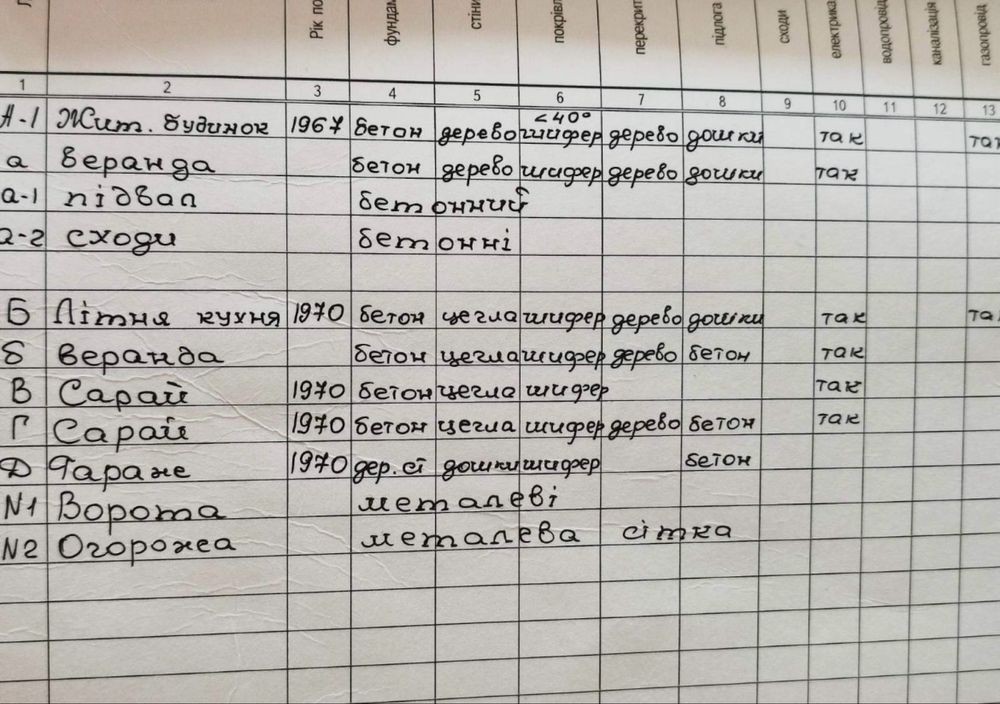 Рік по фундам стіни покрівл перекрит підлога сходи електрика водопровід каналізація газопровід
1 2 3 4 5 6 7 8 9 10 11 12 13
<40°
А-1 Жит. будинок 1967 бетон дерево шифер дерево дошки так так
а веранда бетон дерево шифер дерево дошки так
а-1 підвал бетонний
а-2 сходи бетонні
Б Літня кухня 1970 бетон цегла шифер дерево дошки так так
б веранда бетон цегла шифер дерево бетон так
В Сарай 1970 бетон цегла шифер так
Г Сарай 1970 бетон цегла шифер дерево бетон так
Д Гараж 1970 дер. ст дошки шифер бетон
N1 Ворота металеві
N2 Огорожа металева сітка